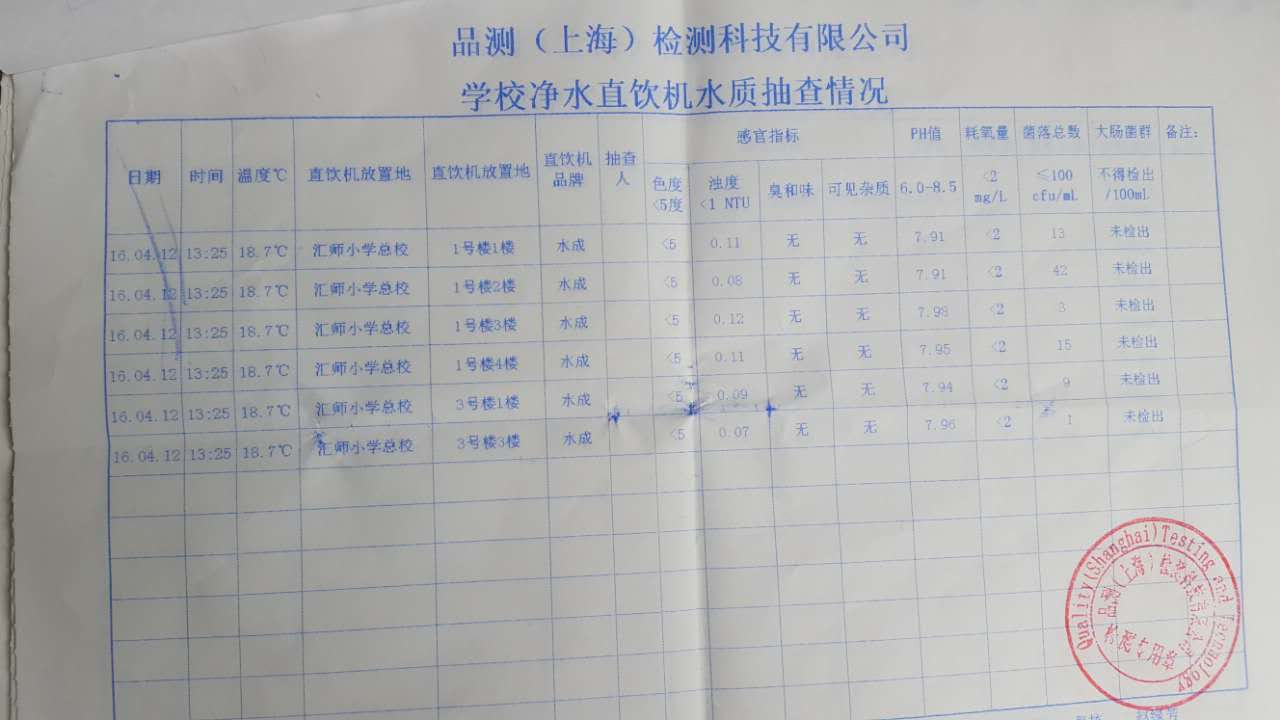 品测（上海）检测科技有限公司
学校净水直饮机水质抽查情况
日期 时间 温度℃ 直饮机放置地 直饮机放置地 直饮机品牌 抽查人 感官指标 PH值 耗氧量 菌落总数 大肠菌群 备注：
色度<5度 浊度<1 NTU 臭和味 可见杂质 6.0-8.5 <2 mg/L ≤100 cfu/mL 不得检出/100mL
16.04.12 13:25 18.7℃ 汇师小学总校 1号楼1楼 水成 <5 0.11 无 无 7.91 <2 13 未检出
16.04.12 13:25 18.7℃ 汇师小学总校 1号楼2楼 水成 <5 0.08 无 无 7.91 <2 42 未检出
16.04.12 13:25 18.7℃ 汇师小学总校 1号楼3楼 水成 <5 0.12 无 无 7.98 <2 3 未检出
16.04.12 13:25 18.7℃ 汇师小学总校 1号楼4楼 水成 <5 0.11 无 无 7.95 <2 15 未检出
16.04.12 13:25 18.7℃ 汇师小学总校 3号楼1楼 水成 <5 0.09 无 无 7.94 <2 9 未检出
16.04.12 13:25 18.7℃ 汇师小学总校 3号楼3楼 水成 <5 0.07 无 无 7.96 <2 1 未检出
Quality(Shanghai)Testing and Technology
品测（上海）检测科技有限公司
检测专用章